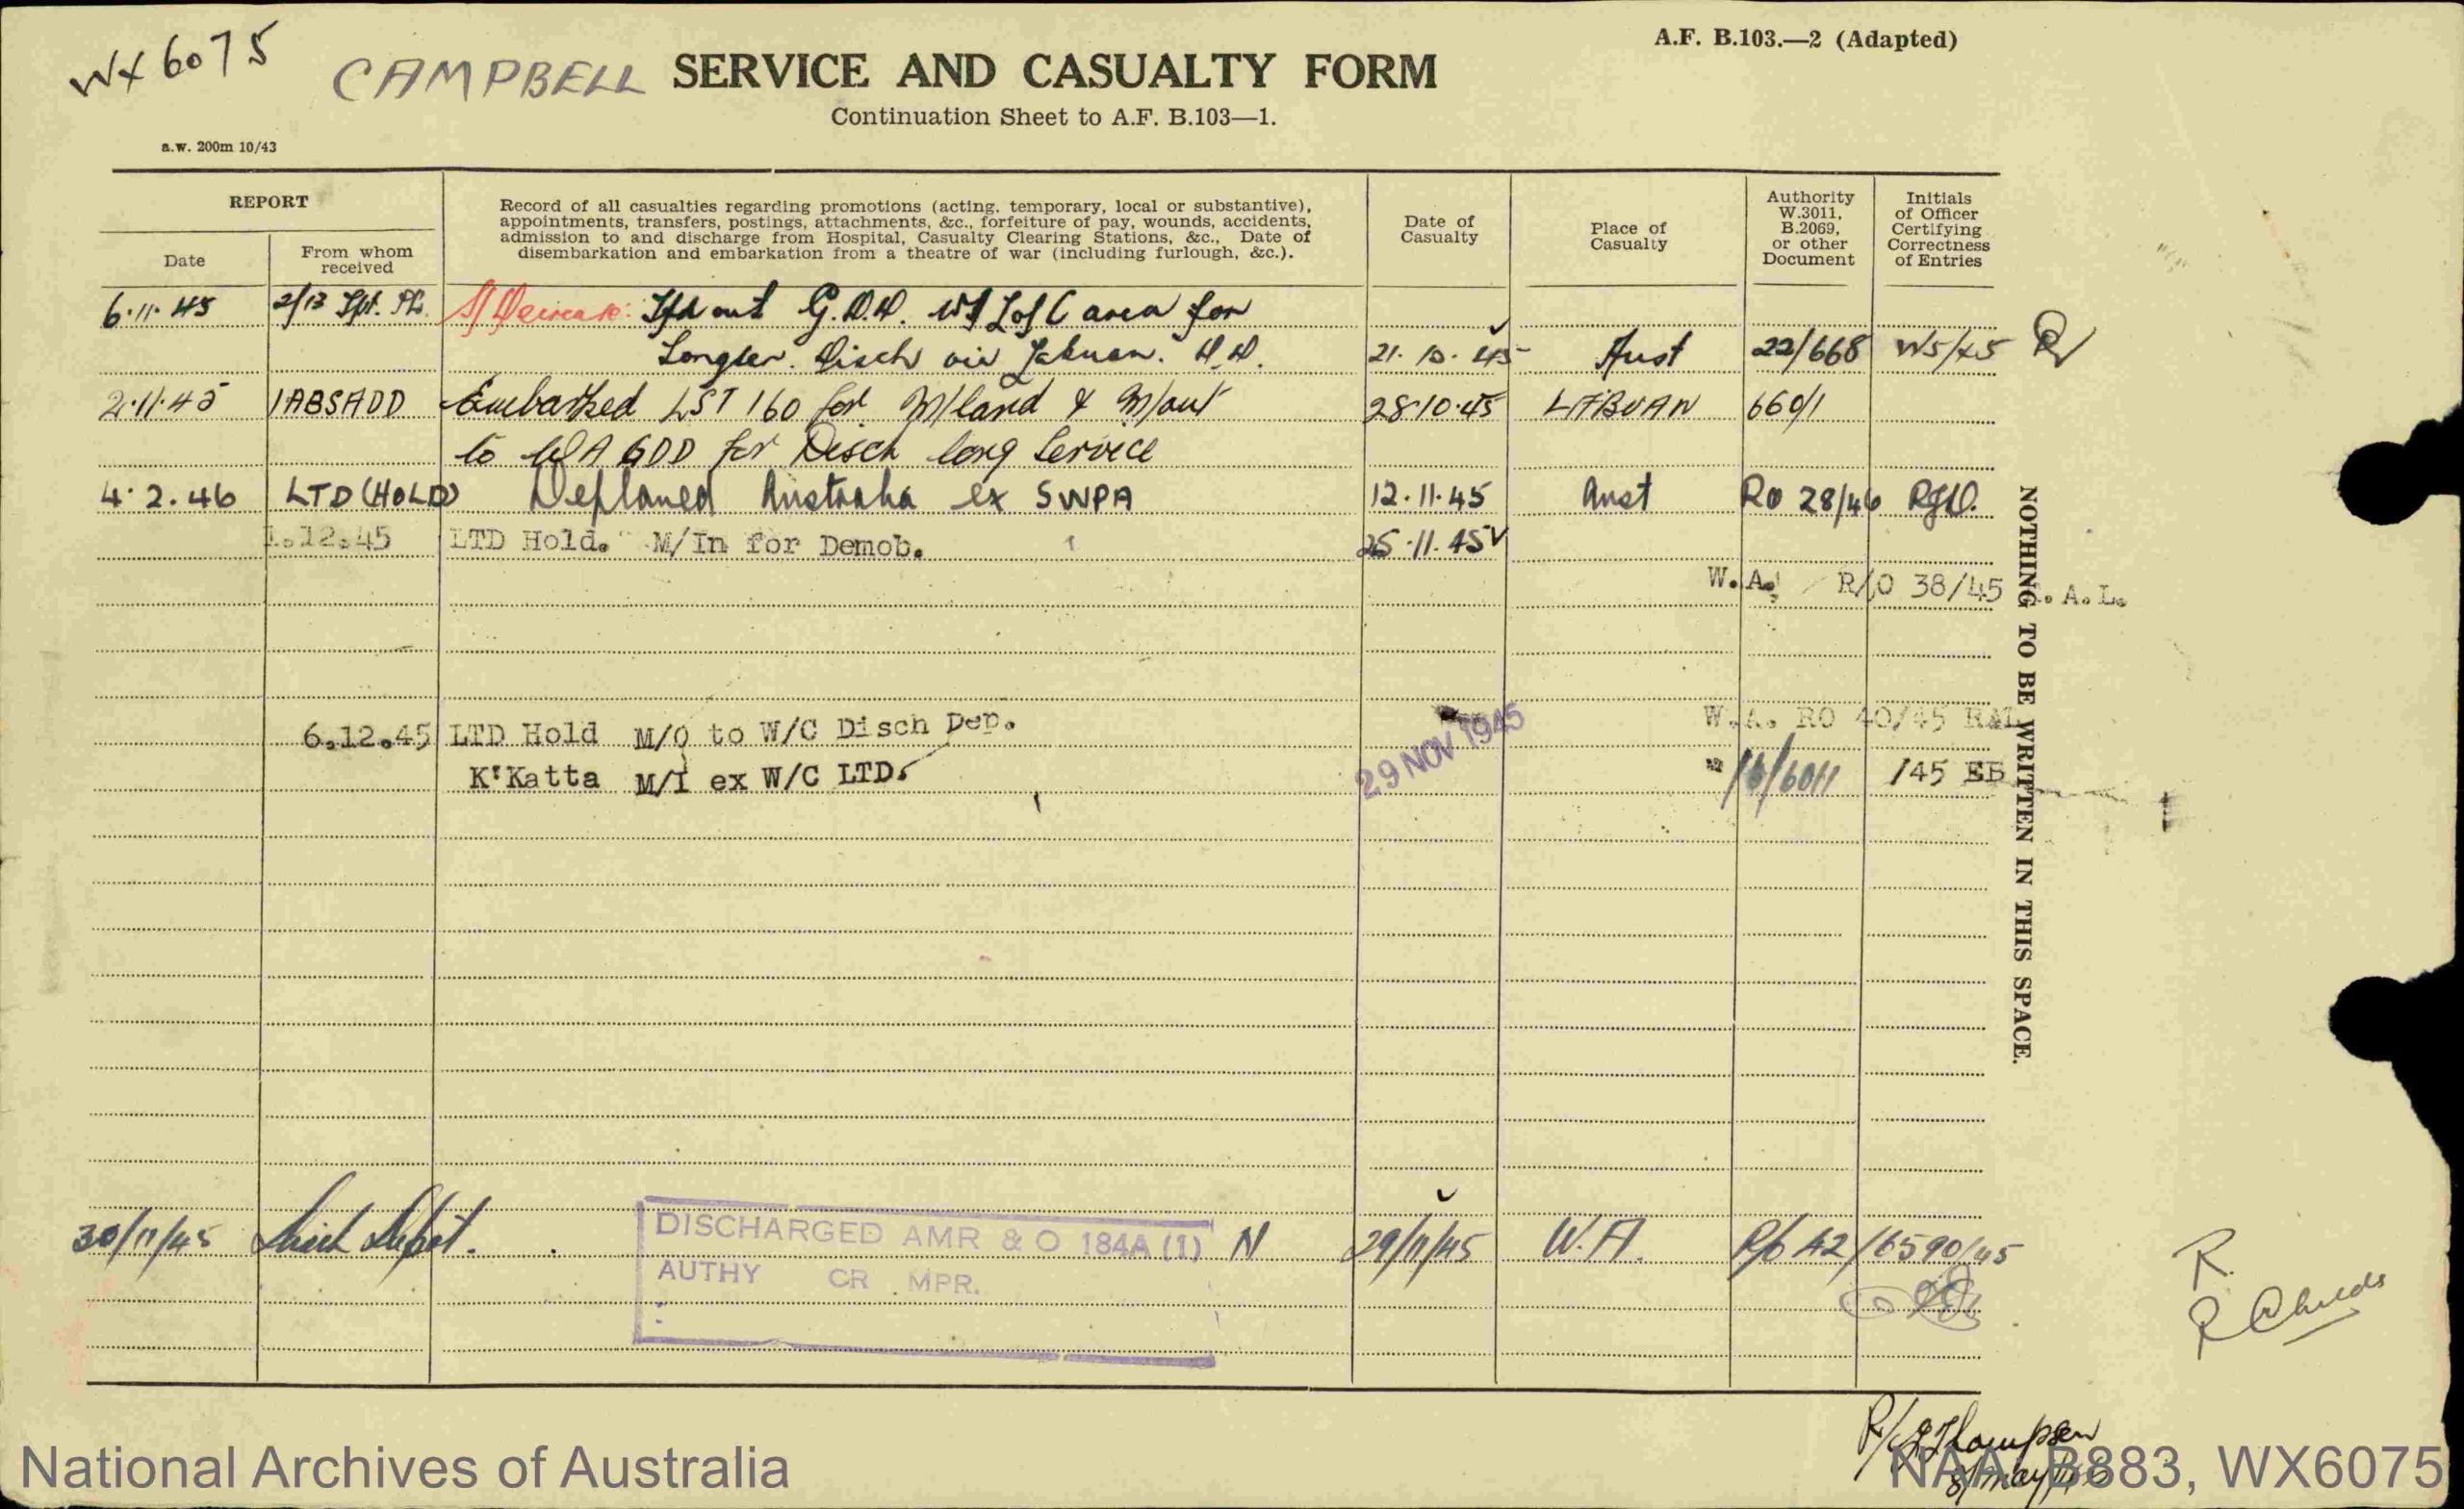 WX6075
CAMPBELL SERVICE AND CASUALTY FORM
A.F. B.103.—2 (Adapted)
Continuation Sheet to A.F. B.103—1.
a.w. 200m 10/43
REPORT
Date
From whom received
Record of all casualties regarding promotions (acting, temporary, local or substantive),
appointments, transfers, postings, attachments, &c., forfeiture of pay, wounds, accidents,
admission to and discharge from Hospital, Casualty Clearing Stations, &c., Date of
disembarkation and embarkation from a theatre of war (including furlough, &c.).
Date of Casualty
Place of Casualty
Authority W.3011, B.2069, or other Document
Initials of Officer Certifying Correctness of Entries
6.11.45 2/13 out G.D.D. L of C area for
Disch 21.10.45 Aust 22/668 W5/45
2.11.45 1ABSADD Embarked LST 160 for M/land & M/out 28.10.45 LABUAN 660/1
to WA GDD for Disch long Service
4.2.46 LTD (HOLD) Deplaned Australia ex SWPA 12.11.45 Aust RO 28/46
1.12.45 LTD Hold. M/In for Demob. 25.11.45
W.A. R/O 38/45 .A.L.
6.12.45 LTD Hold M/O to W/C Disch Dep. W.A. RO 40/45 RAL
K'Katta M/I ex W/C LTD. 29 NOV 1945 /45 EB
30/11/45 DISCHARGED AMR & O 184A (1) N 29/11/45 W.A. R/o 42/6590/45
AUTHY CR MPR.
NOTHING TO BE WRITTEN IN THIS SPACE.
R.
R Childs
Thompson
National Archives of Australia
NAA: B883, WX6075